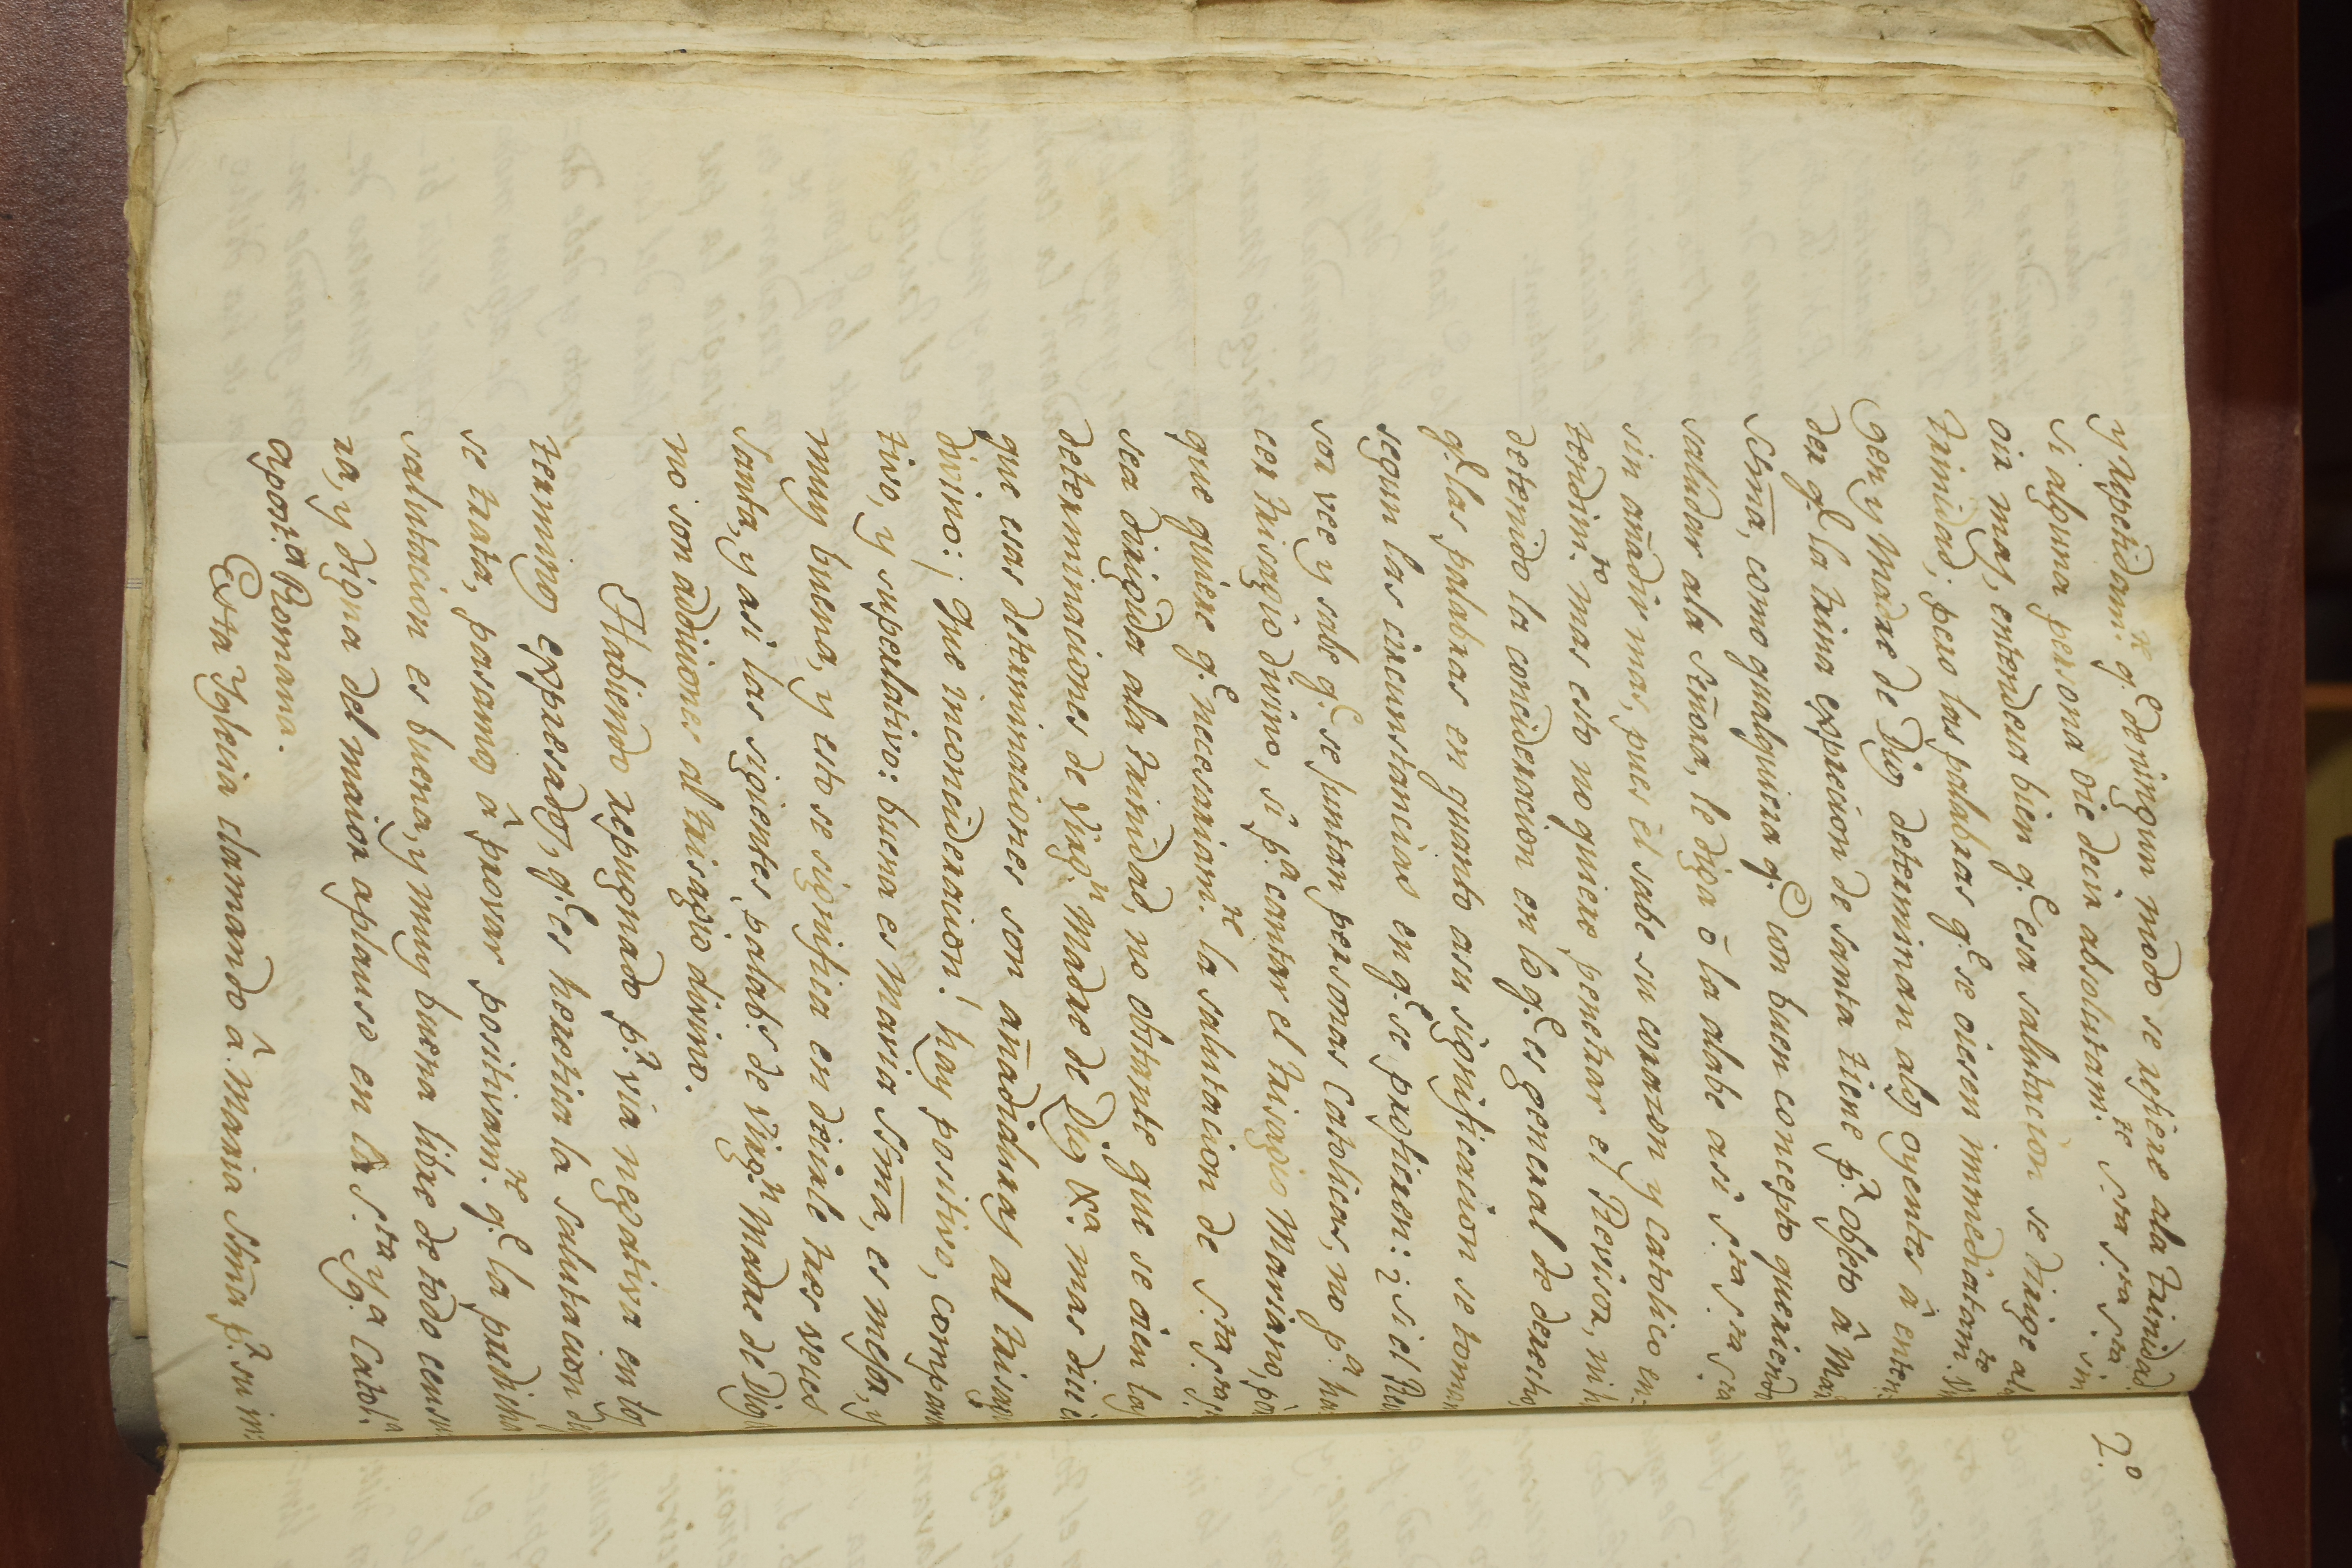 y Repetidam.te q.e de ningun modo se refiere ala Trinidad.
si alguna persona oie decir absolutam.te S.ta S.ta S.ta sin
oir mas, entendera bien q.e esa salutacion se dirige ala
Trinidad; pero las palabras q.e se oiesen immediatam.te
gen y Madre de Dios determinan alos oyentes â enten-
der q.e la trina exprecion de santa tiene p.r objeto â Mar
SSma, como qualquiera q.e con buen concepto queriendo
saludar ala Señora, le diga ô la alabe asi S.ta S.ta S.ta
sin añadir mas, pues el sabe su corazon y catolico en-
tendim.to mas esto no quiere penetrar el Revisor, ni h
detenido la concideracion en lo q.e es general de derecho
q.e las palabras en quanto asu significacion se toman
segun las circunstancias en q.e se profieren: i si el Rev
sor vee y sabe q.e se juntan personas Catolicas, no p.a ha
cer trisagio divino, si p.a cantar el trisagio Mariano, por
que quiere q.e necesariam.te la salutacion de S.ta S.ta S.
sea dirigida ala Trinidad, no obstante que se oien las
determinaciones de Virg.n Madre de Dios &.a mas dice
que esas determinaciones son añadiduras al trisag
divino: ¡que inconcideracion! hay positivo, compara
tivo, y superlativo: buena es Maria SSma, es mejor, y
muy buena, y esto se significa en decirle tres veces
santa, y asi las sigientes palab.s de Virg.n Madre de Dios
no son adiciones al trisagio divino.
Habiendo repugnado p.r via negativa en los
terminos expresados, q.e es heretica la salutacion de q
se trata, pasamos â provar positivam.te q.e la predicha
salutacion es buena, y muy buena libre de todo censu
ra, y digna del maior aplauso en la S.ta Yg.a Catoli-
apost.ca Romana.
Esta Yglecia clamando â Maria SSma p.r su in-
2.º